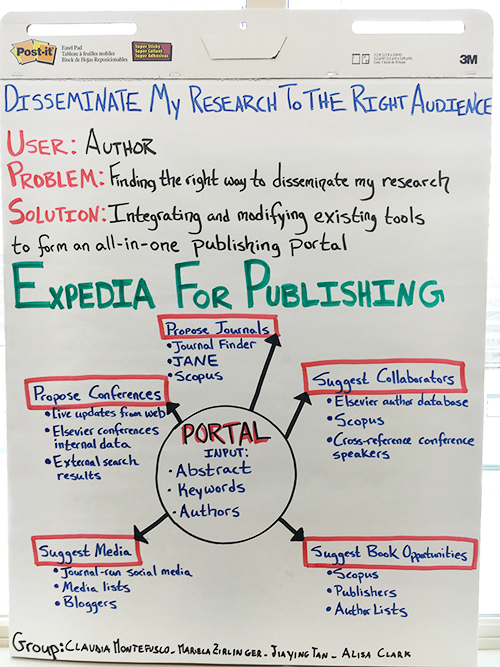 Post-it
Easel Pad
Tableau à feuilles mobiles
Block de Hojas Reposicionables
Super Sticky
Super Collant
Super Adhesivas
3M
DISSEMINATE MY RESEARCH TO THE RIGHT AUDIENCE
USER: AUTHOR
PROBLEM: Finding the right way to disseminate my research
SOLUTION: Integrating and modifying existing tools
to form an all-in-one publishing portal
EXPEDIA FOR PUBLISHING
Propose Journals
• Journal Finder
• JANE
• Scopus
Propose Conferences
• Live updates from web
• Elsevier conferences
internal data
• External search
results
Suggest Collaborators
• Elsevier author database
• Scopus
• Cross-reference conference
speakers
PORTAL
INPUT:
• Abstract
• Keywords
• Authors
Suggest Media
• Journal-run social media
• Media lists
• Bloggers
Suggest Book Opportunities
• Scopus
• Publishers
• Author Lists
Group: CLAUDIA MONTEFUSCO - MARIELA ZIRLINGER - JIAYING TAN - ALISA CLARK